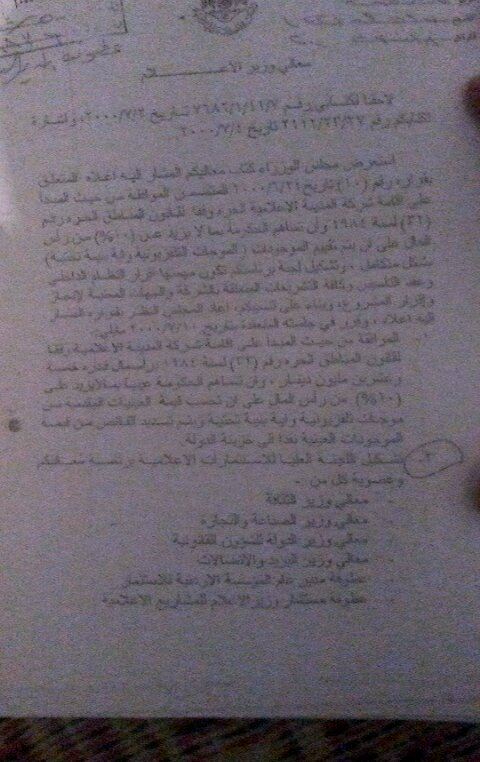 معالي وزير الاعـــــــــلام
لاحقا لكتابي رقم ٧٦٨٦/١/٤١/٧ تاريخ ٢٠٠٠/٧/٢، واشارة
لكتابكم رقم ٢١١٦/٢٢/٢٧ تاريخ ٢٠٠٠/٧/٤.
استعرض مجلس الوزراء كتاب معاليكم المشار اليه اعلاه المتعلق
بقراره رقم (١٠) تاريخ ٢٠٠٠/٦/٢٤ المتضمن الموافقة من حيث المبدأ
على اقامة شركة المدينة الاعلامية الحرة وفقا لقانون المناطق الحرة رقم
(٣٢) لسنة ١٩٨٤ وان تساهم الحكومة بما لا يزيد عن (١٠%) من رأس
المال على ان يتم تقييم الموجودات (الموجات التلفزيونية واية بنية تحتية)
بشكل متكامل، وتشكيل لجنة برئاستكم تكون مهمتها اقرار النظام الداخلي
وعقد التأسيس وكافة التشريعات المتعلقة بالشركة والجهات المعنية لانجاز
واقرار المشروع، وبناء على تنسيبكم، اعاد المجلس النظر بقراره المشار
اليه اعلاه، وقرر في جلسته المنعقدة بتاريخ ٢٠٠٠/٧/١٠ مايلي:-
الموافقة من حيث المبدأ على اقامة شركة المدينة الاعلامية وفقا
لقانون المناطق الحرة رقم (٣٢) لسنة ١٩٨٤ برأسمال قدره خمسة
وعشرين مليون دينار، وان تساهم الحكومة عينيا بما لا يزيد على
(١٠%) من رأس المال على ان تحسب قيمة العينيات المقدمة من
موجات تلفزيونية واية بنية تحتية ويتم تسديد الفائض من قيمة
الموجودات العينية نقدا الى خزينة الدولة.
٢. تشكيل اللجنة العليا للاستثمارات الاعلامية برئاسة معاليكم
وعضوية كل من :-
معالي وزير الثقافة
معالي وزير الصناعة والتجارة
معالي وزير الدولة للشؤون القانونية
معالي وزير البريد والاتصالات
عطوفة مدير عام المؤسسة الاردنية للاستثمار
عطوفة مستشار وزير الاعلام للمشاريع الاعلامية